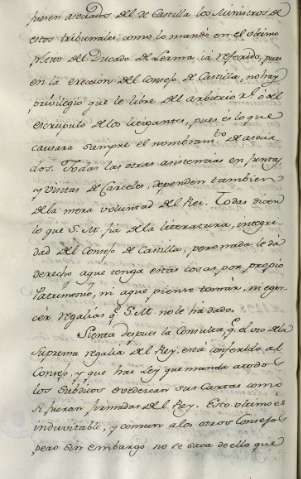 fueren asociados del de Castilla los Ministros de
otros tribunales como lo mandó en el ultimo
pleito del Ducado de Lerma ia referido, pues
en la ereccion del Consejo de Castilla, no hay
privilegio que le libre del arbitrio Rl. o del
escrupulo de los litigantes, pues es lo que
causara siempre el nombramto. de asocia
dos. Todas las otras asistencias en juntas
y visitas de Carceles, dependen tambien
de la mera voluntad del Rei. Todas dicen
lo que S. M. fia de la literatura, integri
dad del Consejo de Castilla, pero nada le da
derecho aque tenga estas cosas por propio
Patrimonio, ni aque piense tomar, ni eger
cer regalias q. S. M. no le ha dado.
Sienta despues la Consulta, q. el uso de la
Suprema regalia del Rey, está conferido al
Consejo, y que hai Ley que manda atodos
los Subditos ovedezcan sus Cartas como
si fueran firmadas del Rey. Esto ultimo es
induvitable, y comun alos otros Consejos
pero sin embargo no se saca de ello que